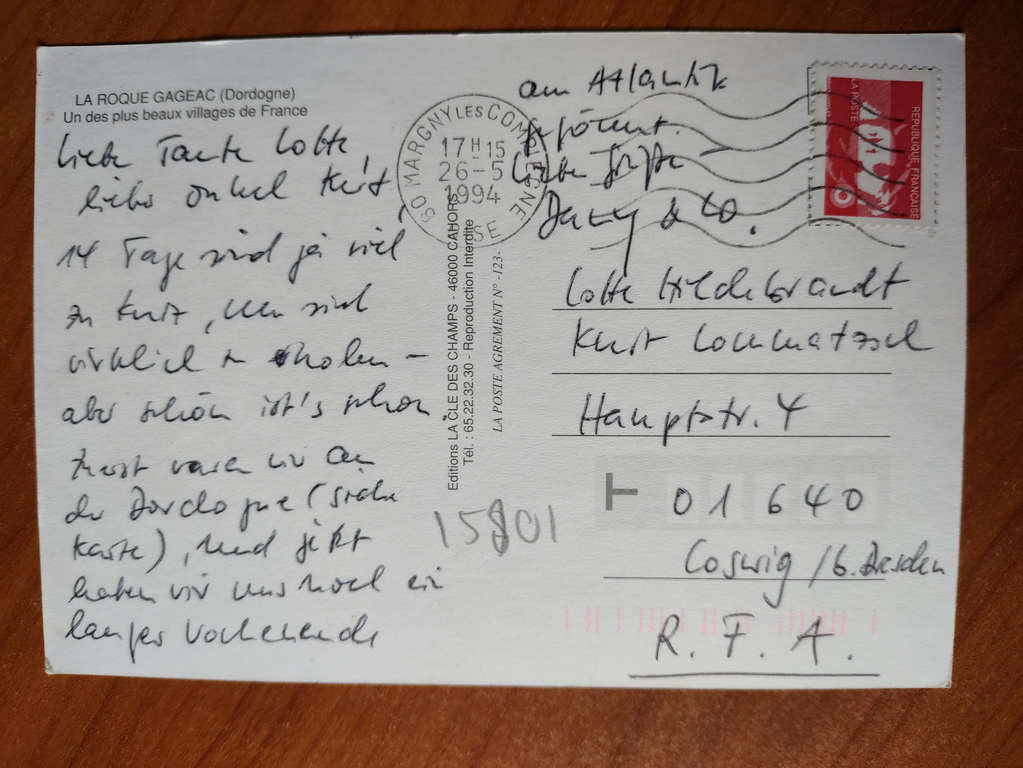 LA ROQUE GAGEAC (Dordogne)
Un des plus beaux villages de France
Liebe Tante Lotte,
lieber Onkel Kurt,
14 Tage sind ja viel
zu kurz, um sich
wirklich zu erholen –
aber schön ist's schon
Zuerst waren wir an
der Dordogne (siehe
Karte), und jetzt
haben wir uns noch ein
langes Wochenende
am Atlantik
gegönnt.
Liebe Grüße
& Co.
60 MARGNY LES COMPIEGNE
17H15
26-5
1994
OISE
Editions LA CLE DES CHAMPS - 46000 CAHORS
Tél. : 65.22.32.30 - Reproduction Interdite
LA POSTE AGREMENT N° -123-
REPUBLIQUE FRANÇAISE
LA POSTE
Lotte Hildebrandt
Kurt Lommatzsch
Hauptstr. 4
T 01640
Coswig / b. Dresden
R. F. A.
15801